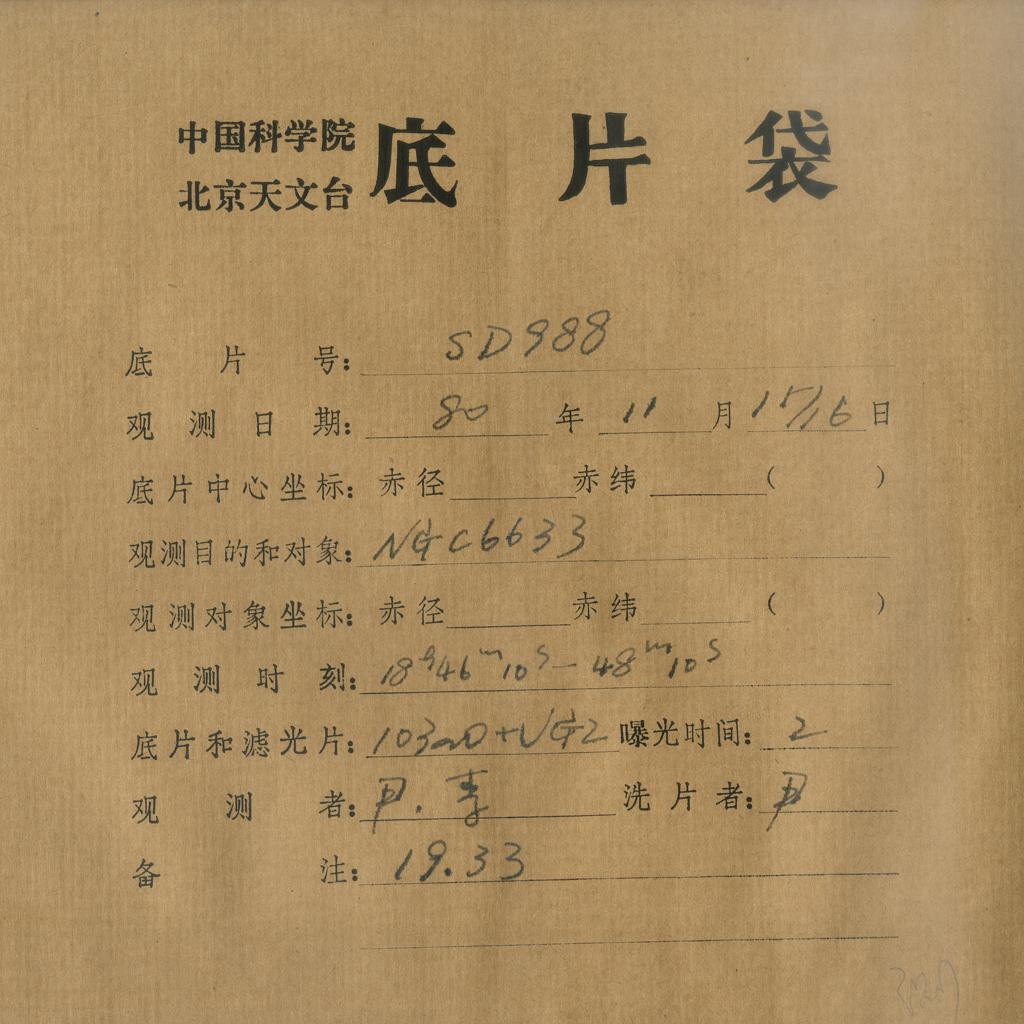 中国科学院
北京天文台
底片袋
底片号：SD988
观测日期：80年11月15/16日
底片中心坐标：赤径 赤纬 （ ）
观测目的和对象：NGC6633
观测对象坐标：赤径 赤纬 （ ）
观测时刻：18h46m10s—48m10s
底片和滤光片：103aD+VG2 曝光时间：2
观测者：尹.李 洗片者：尹
备注：19.33